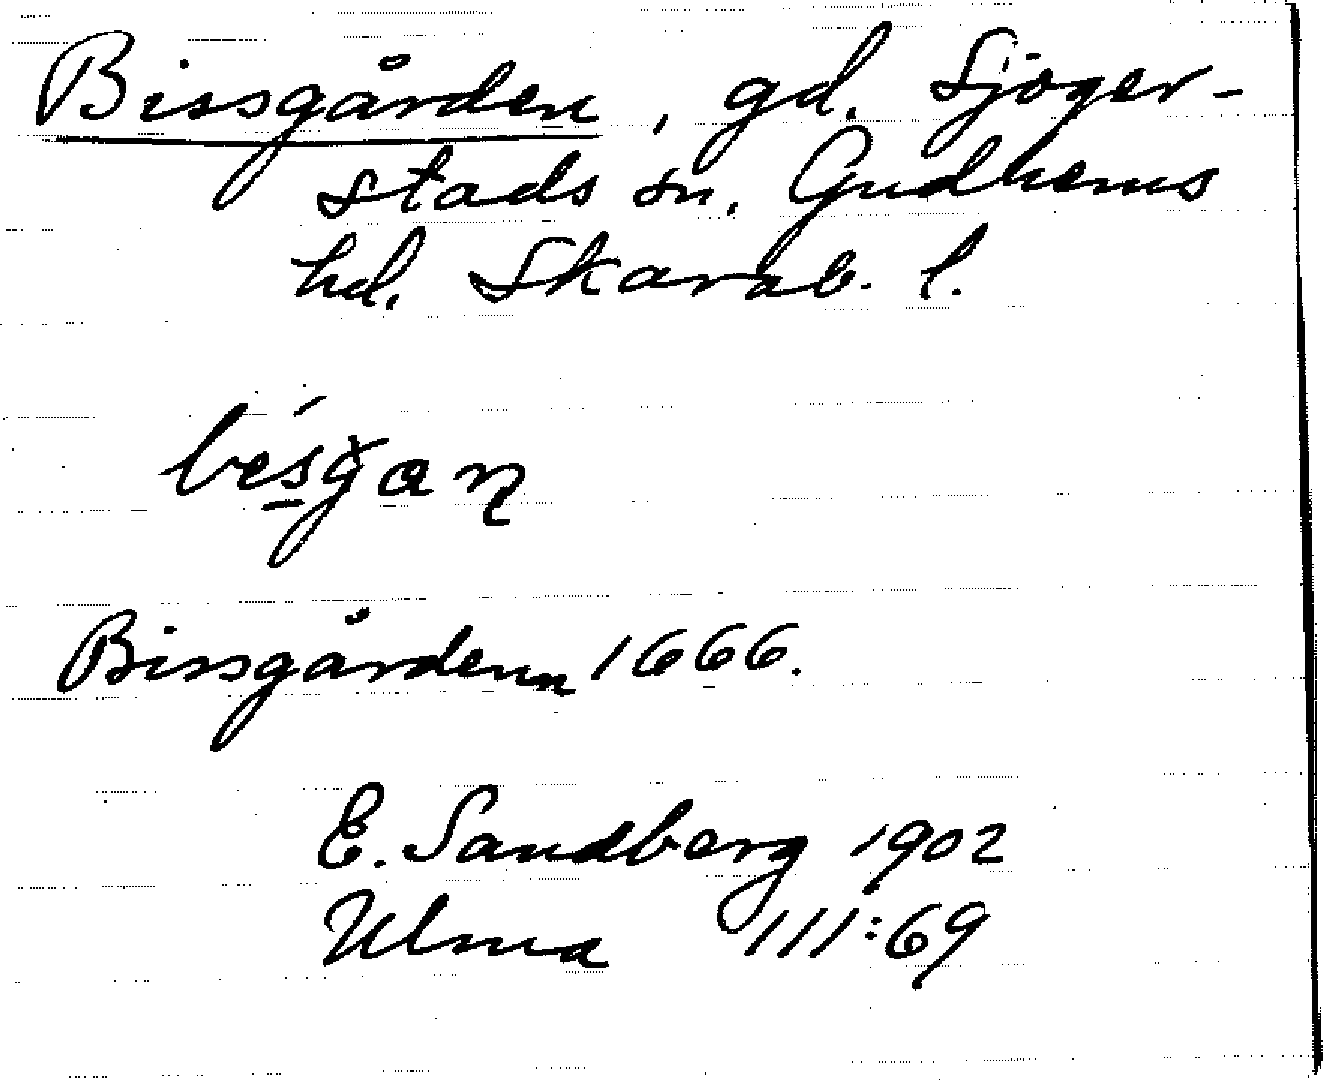 Bissgården, gd. Sjöger-
stads sn. Gudhems
hd. Skarab. l.
bésgan
Bissgårdenn 1666.
E. Sandberg 1902
Ulma 111:69